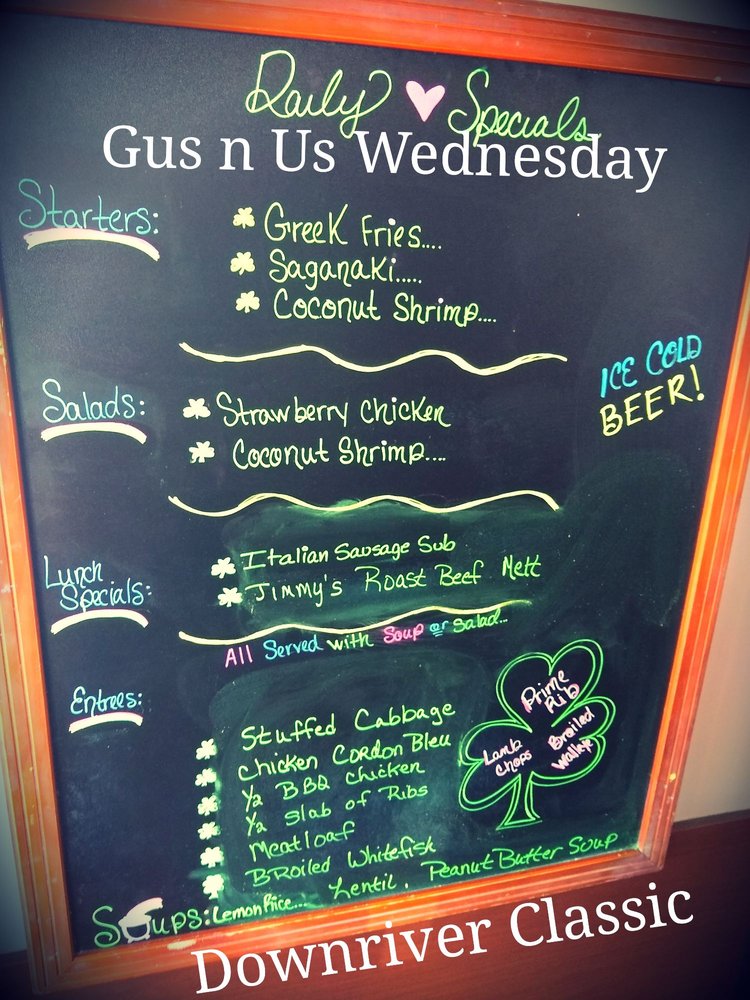 Daily Specials
Gus n Us Wednesday
Starters:
Greek Fries....
Saganaki.....
Coconut Shrimp....
ICE COLD
BEER!
Salads:
Strawberry Chicken
Coconut Shrimp....
Lunch
Specials:
Italian Sausage Sub
Jimmy's Roast Beef Melt
All Served with Soup or Salad...
Entrees:
Stuffed Cabbage
Chicken Cordon Bleu
1/2 BBQ Chicken
1/2 Slab of Ribs
Meatloaf
Broiled Whitefish
Prime
Rib
Lamb
Chops
Broiled
Walleye
Soups: Lemon Rice.... Lentil, Peanut Butter Soup
Downriver Classic